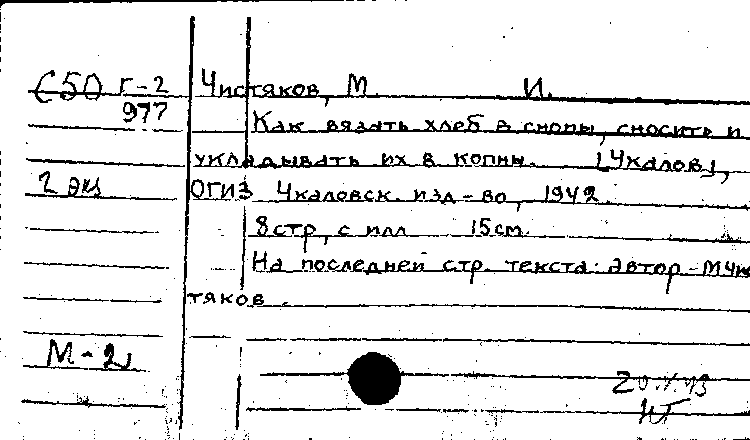 С50 Г-2 Чистяков, М. И.
977
Как вязать хлеб в снопы, сносить и
укладывать их в копны. [Чкалов],
2 экз ОГИЗ Чкаловск. изд-во, 1942.
8 стр, с илл 15 см.
На последней стр. текста: автор - М Чис
тяков.
М-2
20.V.43